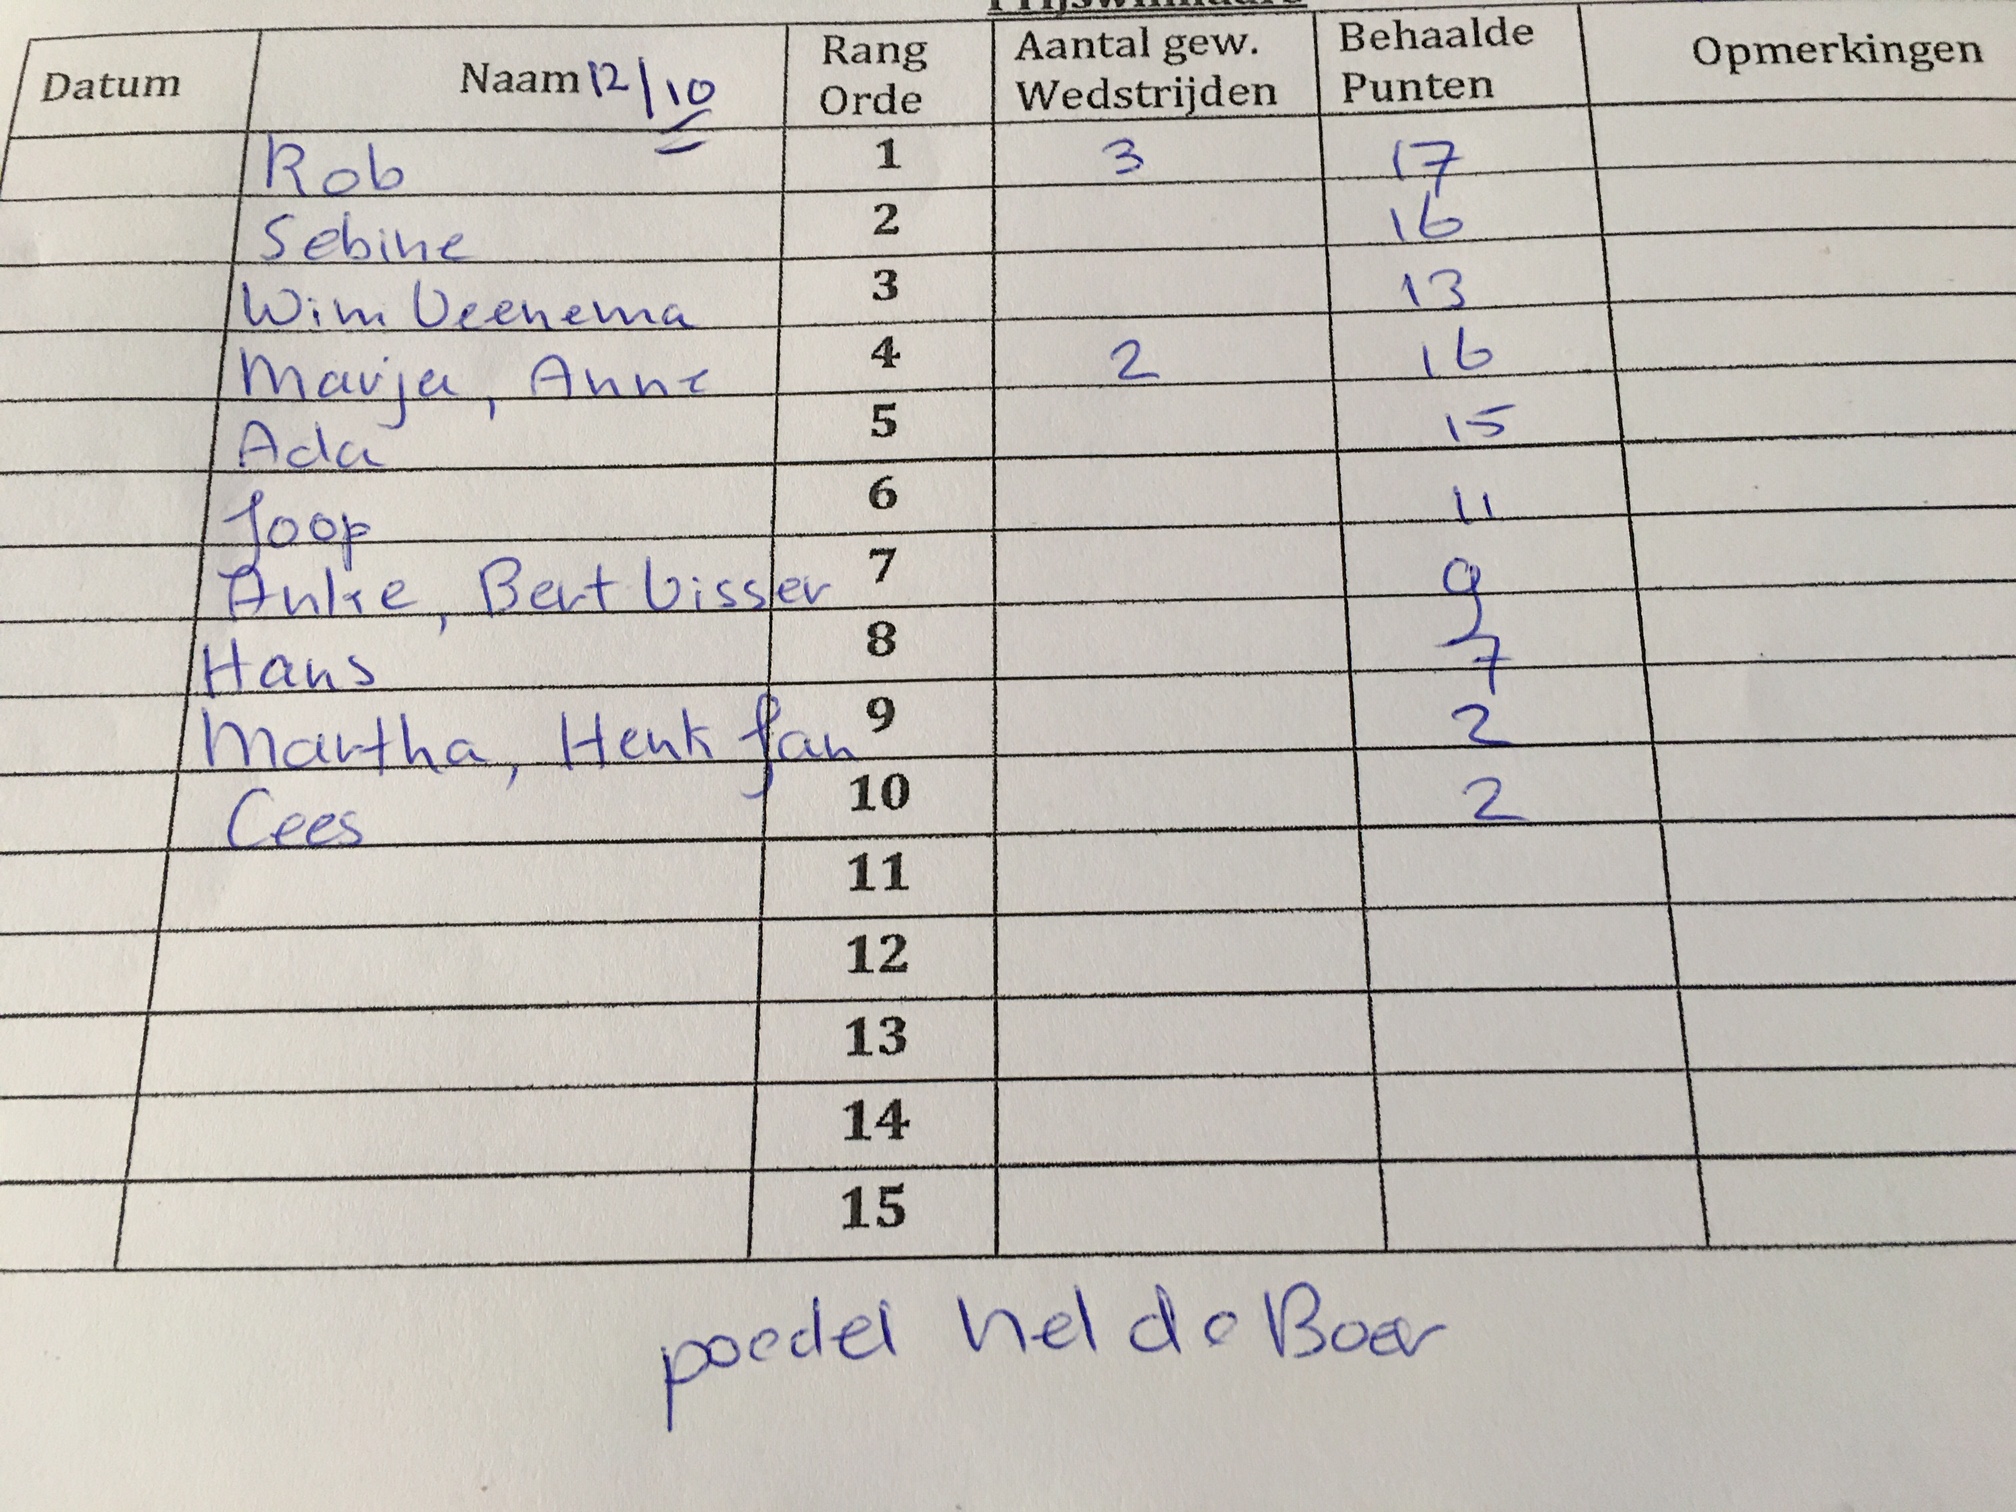 Prijswinnaars
Datum Naam 12/10 Rang Orde Aantal gew. Wedstrijden Behaalde Punten Opmerkingen
Rob 1 3 17
Sebine 2 16
Wim Veenema 3 13
Marja, Anne 4 2 16
Ada 5 15
Joop 6 11
Anke, Bert Visser 7 9
Hans 8 7
Martha, Henk Jan 9 2
Cees 10 2
11
12
13
14
15
poedel Nel de Boer